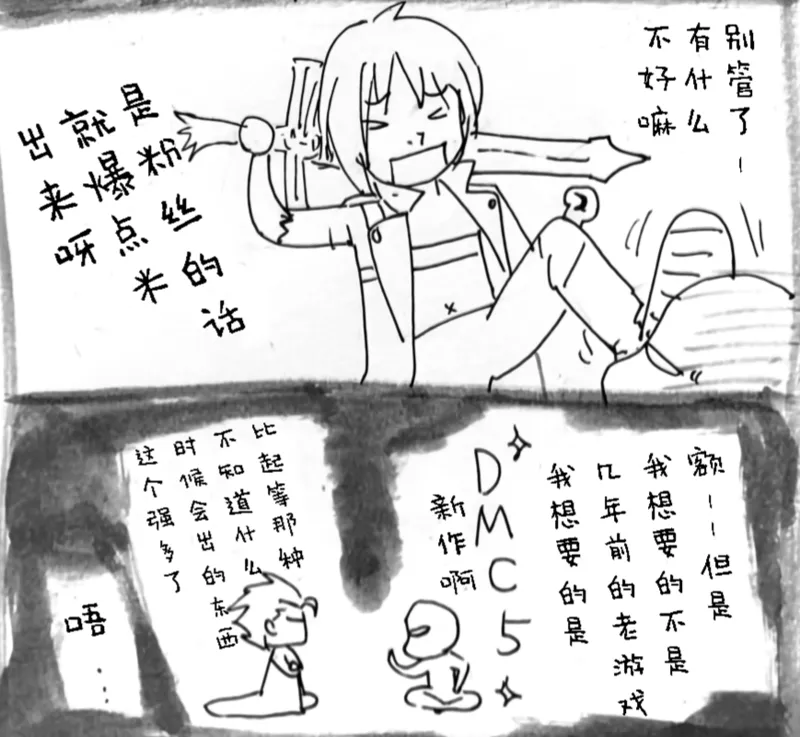 别管了——
有什么
不好嘛
是粉丝的话
就爆点米
出来呀
额——但是
我想要的不是
几年前的老游戏
我想要的是
DMC5
新作啊
比起等那种
不知道什么
时候会出的东西
这个强多了
唔…